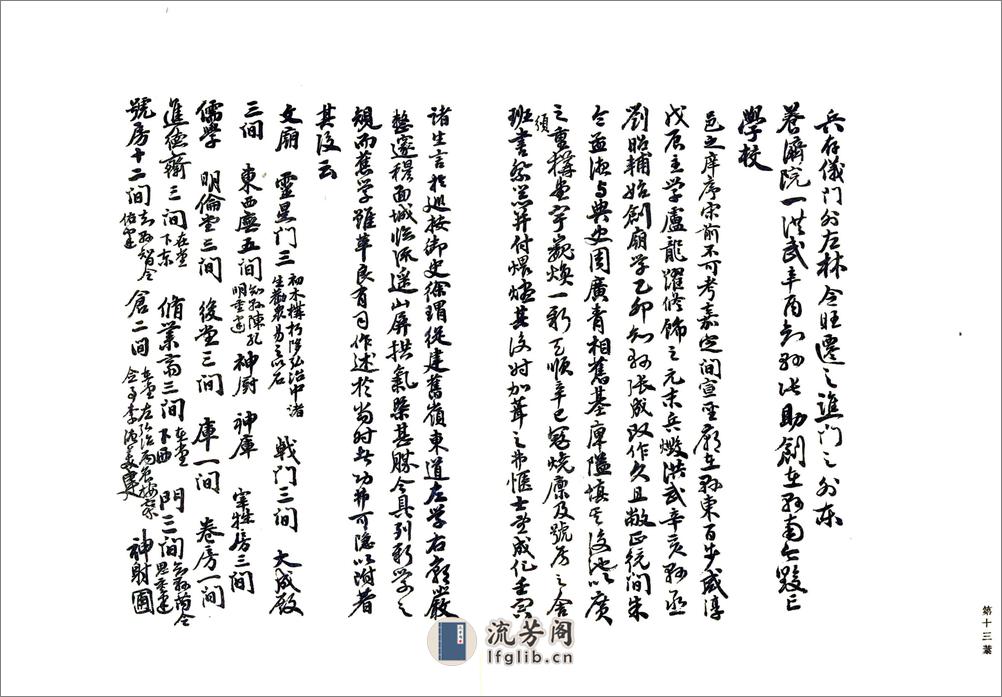 兵存儀門外左林令旺遷之進門之外東
養濟院一洪武辛酉知縣 助創在縣南今毀
學校
邑之庠序宋前不可考嘉定間宣聖廟在縣東百步咸淳
戊辰主學盧龍躍修飾之元末兵燬洪武辛亥縣丞
劉昭輔始創廟學乙卯知縣張成改作久且敝正統間朱
令孟 与典史周廣青相舊基庳隘填 後池以廣
之重構堂宇巍煥一新天順辛巳寇燒廩及號房之舍
班書祭器并付煨燼其後時加葺之弗愜士望成化壬寅
須
諸生言於巡按御史徐瑁從建舊嶺東道左學右廟嚴
整邃穆面城臨流遥山屏拱氣槩甚勝今具列新學之
規而舊學雖革良有司作述於當時其功弗可隱以附著
其後云
文廟 靈星门三 初木構朽隆弘治中諸生勸 易之以石 戟门三间 大成殿
三间 東西廡五间 知縣陳孔明重建 神厨 神庫 宰牲房三间
儒學 明倫堂三间 後堂三间 庫一间 卷房一间
進德齋三间 在堂下東 脩業齋三间 在堂下西 門三间
號房十二间 倉二间 神射圃
第十三葉
流芳阁
lfglib.cn